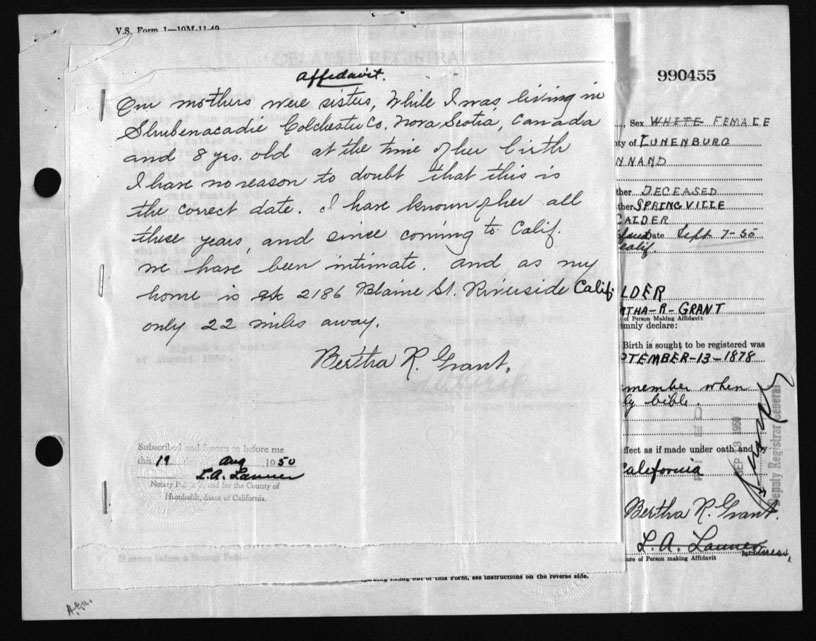 V.S. Form 1—10M-11-49
Affidavit.
Our mothers were sisters, While I was living in
Shubenacadie Colchester Co. Nova Scotia, Canada
and 8 yrs. old at the time of her birth
I have no reason to doubt that this is
the correct date. I have known her all
these years, and since coming to Calif.
we have been intimate. and as my
home is at 2186 Blaine St. Riverside Calif
only 22 miles away.
Bertha R. Grant.
Subscribed and Sworn to before me
this 19 Aug 1950
L.A. Launer
Notary Public and for the County of
Humboldt, State of California.
990455
, Sex WHITE FEMALE
ty of LUNENBURG
NNAND
ther DECEASED
ther SPRINGVILLE
CALDER
Date Sept 7-50
Calif.
LDER
RTHA-R-GRANT
e of Person Making Affidavit
mnly declare:
Birth is sought to be registered was
PTEMBER-13-1878
member when
ly bible.
ffect as if made under oath and
California
SEP 13 1950
Deputy Registrar General
Bertha R. Grant.
L.A. Launer
Witness,
ure of Person making Affidavit
egarding filling out of this Form, see instructions on the reverse side.